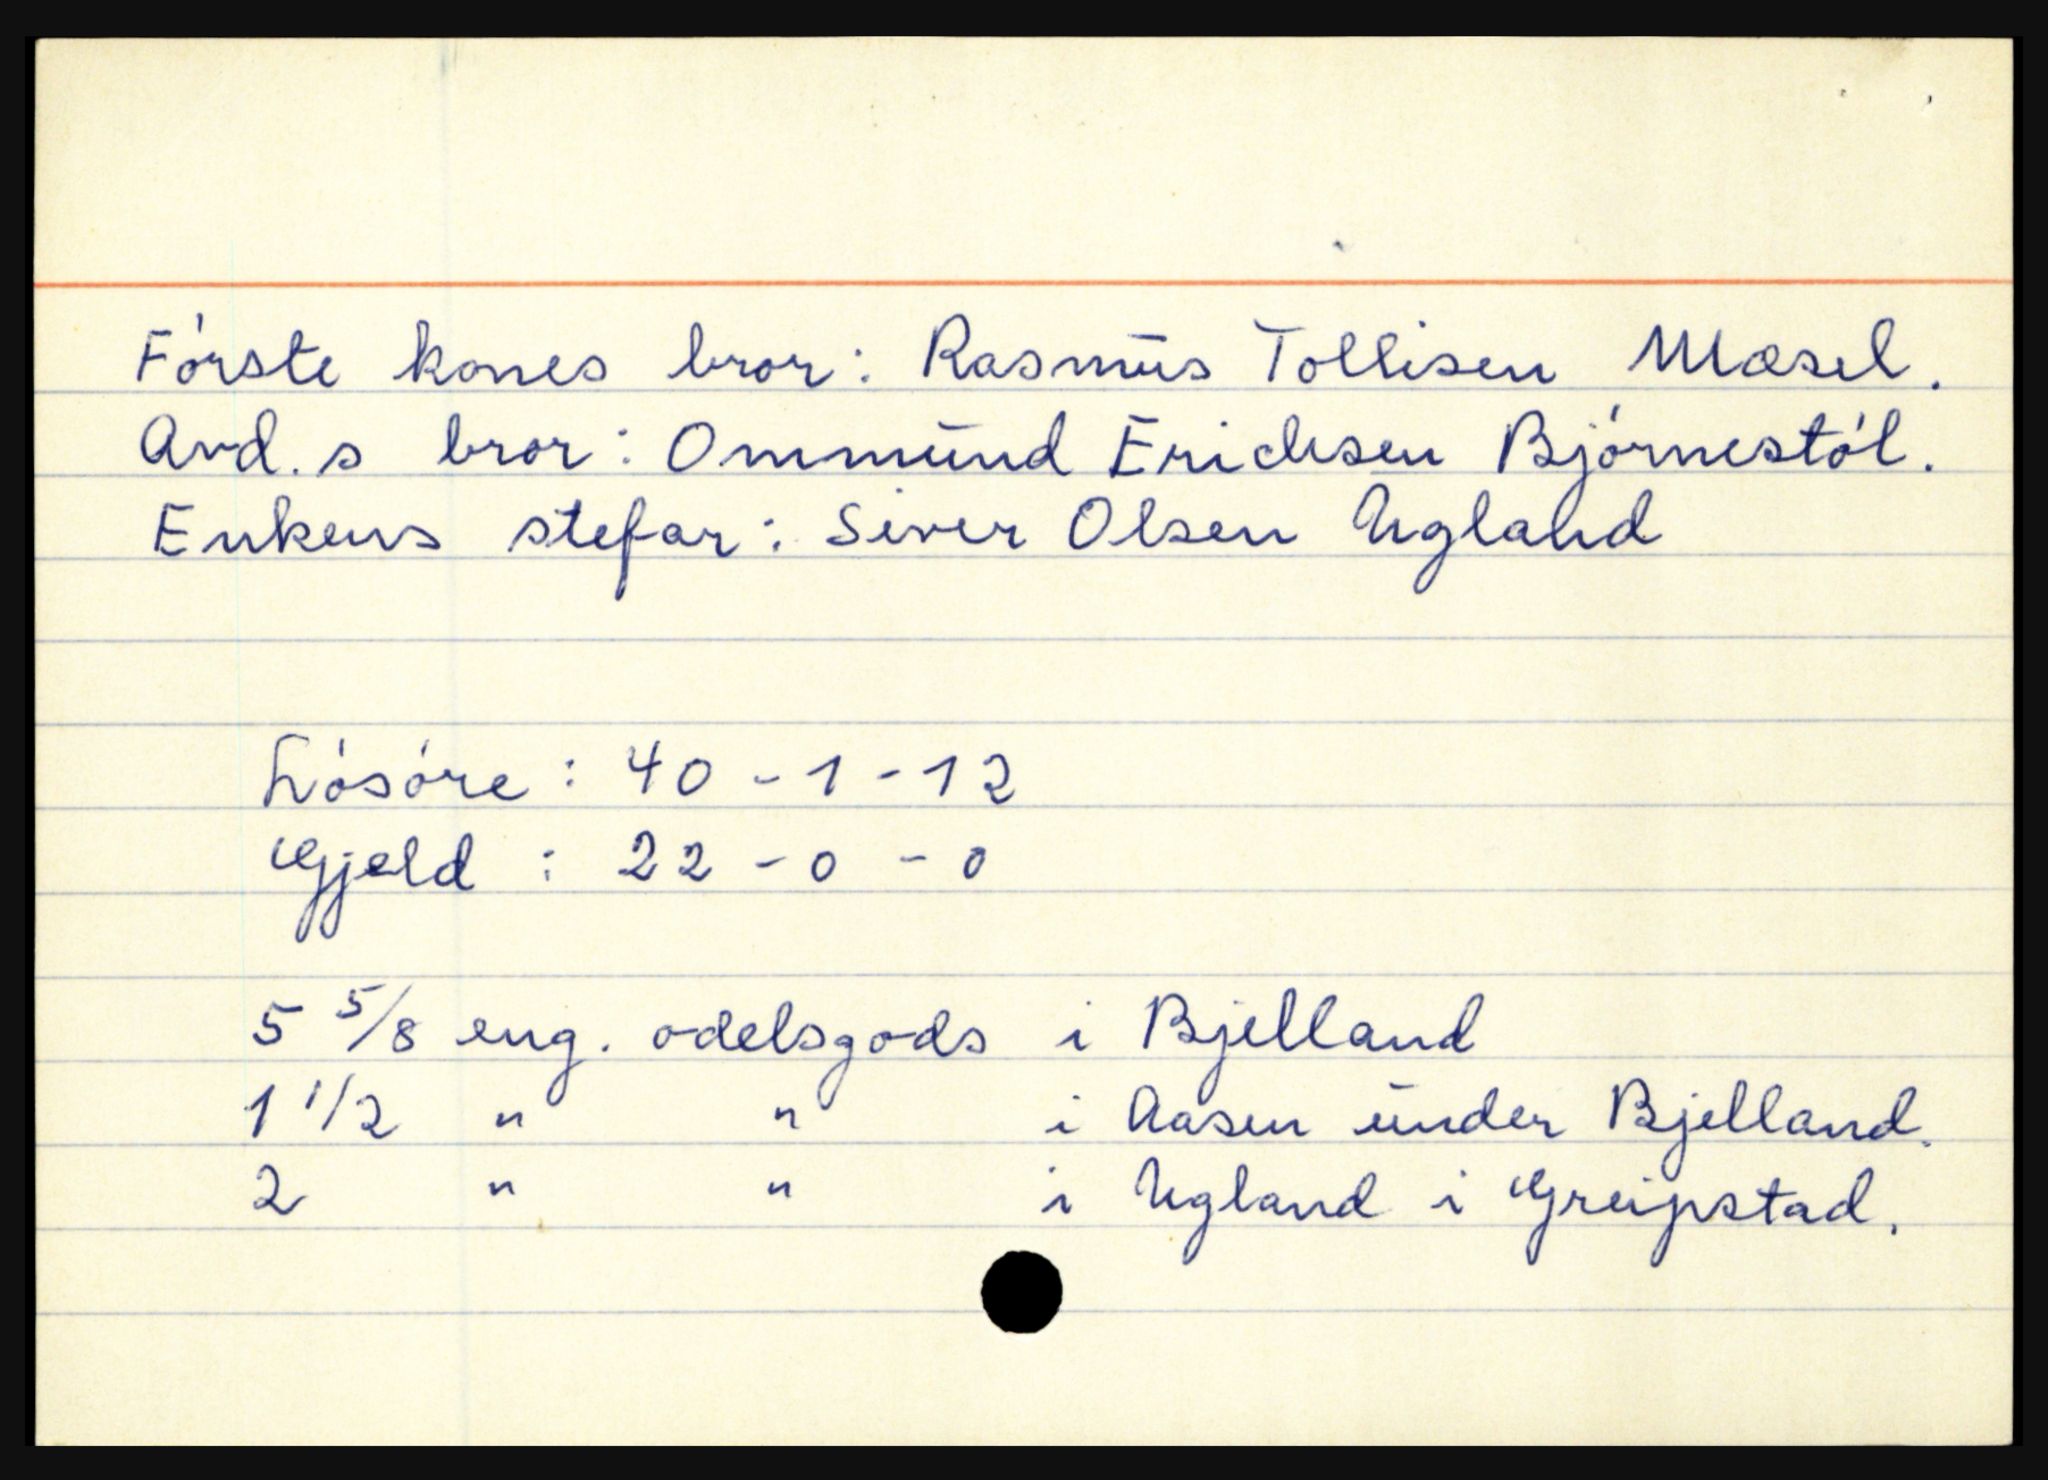 Første kones bror: Rasmus Tollisen Mæsel.
Avd.s bror: Ommund Erichsen Bjørnestøl.
Enkens stefar: Siver Olsen Ugland
Løsøre: 40 - 1 - 12
Gjeld : 22 - 0 - 0
5 5/8 eng. odelsgods i Bjelland
1 1/2 " " i Aasen under Bjelland.
2 " " i Ugland i Greipstad.